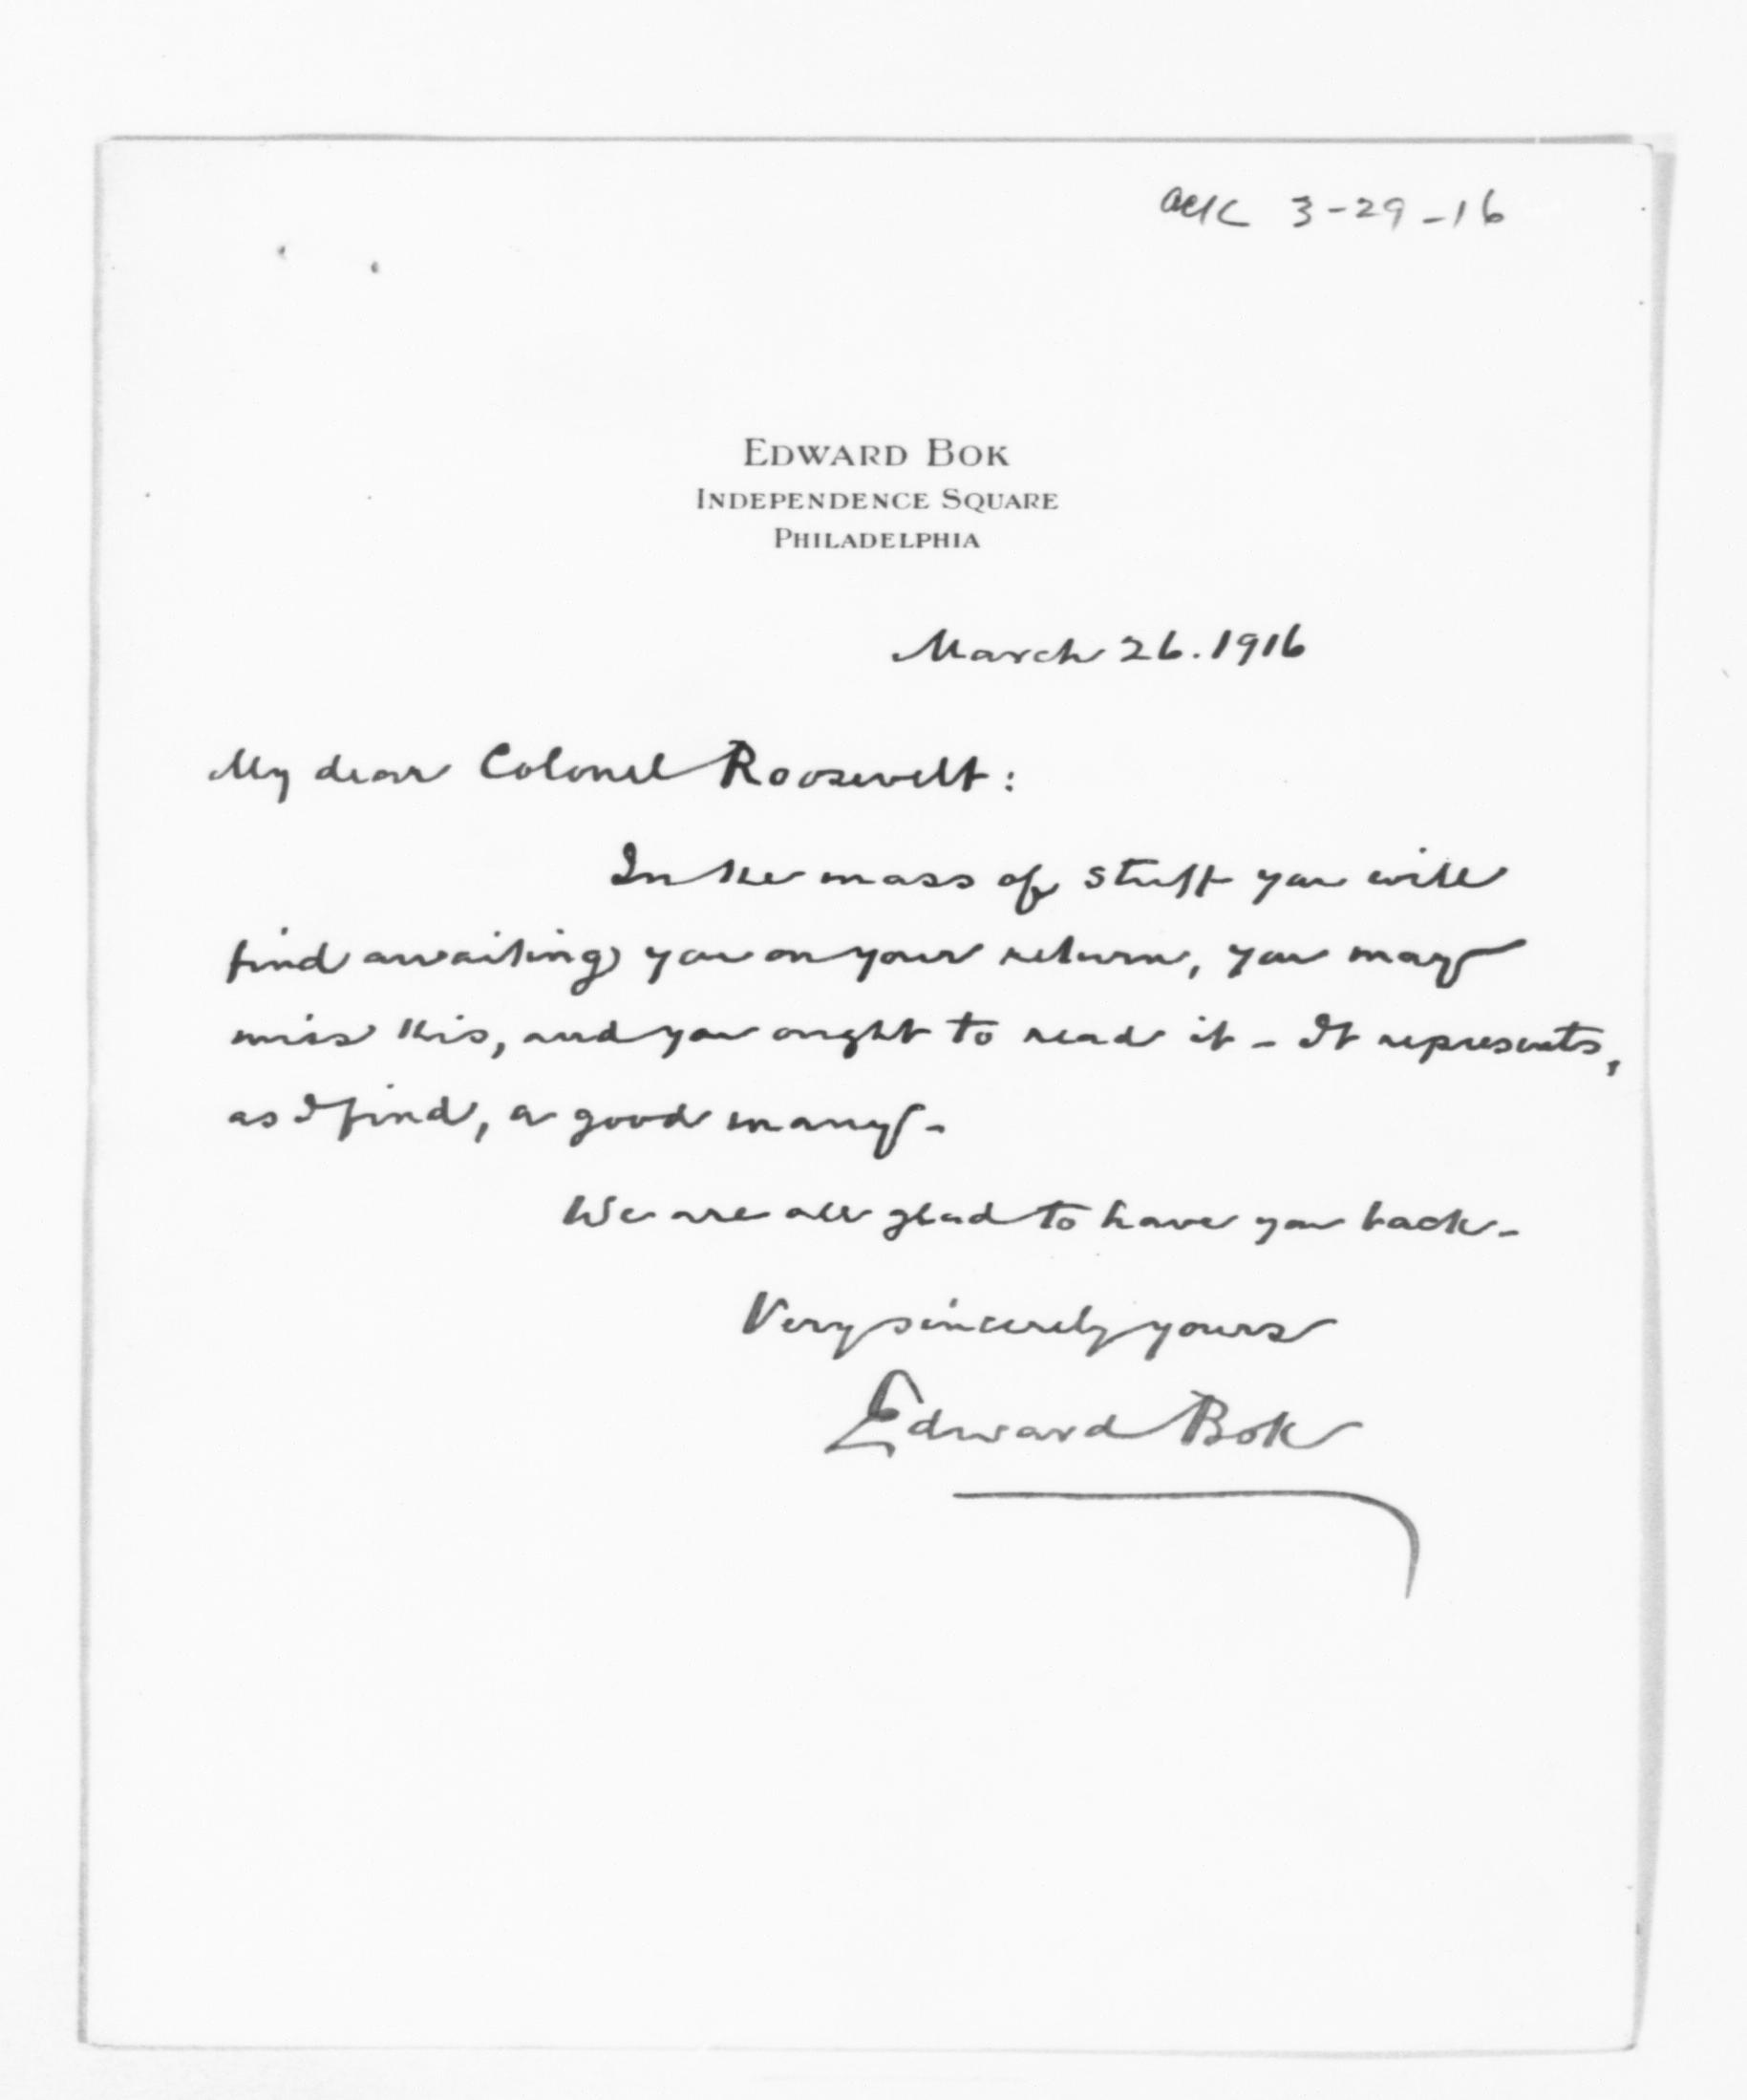 ack 3-29-16
EDWARD BOK
INDEPENDENCE SQUARE
PHILADELPHIA
March 26. 1916
My dear Colonel Roosevelt:
In the mass of stuff you will
find awaiting you on your return, you may
miss this, and you ought to read it - It represents,
as I find, a good many -
We are all glad to have you back -
Very sincerely yours
Edward Bok